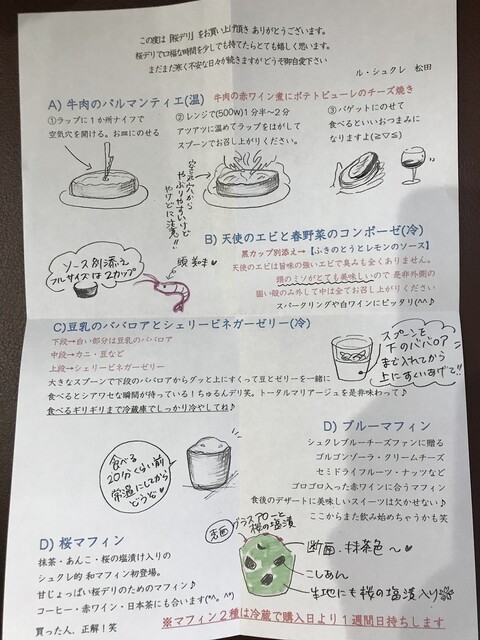 この度は『桜デリ』をお買い上げ頂き ありがとうございます。
桜デリで口福な時間を少しでも持てたらとても嬉しく思います。
まだまだ寒く不安な日々が続きますが どうぞ御自愛下さい
ル・シュクレ 松田
A) 牛肉のパルマンティエ(温) 牛肉の赤ワイン煮にポテトピューレのチーズ焼き
①ラップに1か所ナイフで
空気穴を開ける。お皿にのせる
②レンジで(500W)1分半〜2分
アツアツに温めてラップをはがして
スプーンでお召し上がりください。
③バゲットにのせて
食べるといいおつまみに
なりますよ(≧▽≦)
空気穴から
やぶりやすいけど
やけどに
注意!!
B) 天使のエビと春野菜のコンポーゼ(冷)
黒カップ別添え→【ふきのとうとレモンのソース】
天使のエビは旨味の強いエビで臭みも全くありません。
頭のミソがとても美味しいので 是非外側の
固い殻のみ外して中は全てお召し上がりください
スパークリングや白ワインにピッタリ(^^♪
ソース別添え
フルサイズは2カップ
頭 美味♥
C)豆乳のババロアとシェリービネガーゼリー(冷)
下段→白い部分は豆乳のババロア
中段→カニ・豆など
上段→シェリービネガーゼリー
大きなスプーンで下段のババロアからグッと上にすくって豆とゼリーを一緒に
食べるとシアワセな瞬間が待っている!ちゅるんデリ笑。トータルマリアージュを是非味わって♪
食べるギリギリまで冷蔵庫でしっかり冷やしてね♪
スプーンを
下のババロア
まで入れてから
上にすくいあげて!!
D) ブルーマフィン
シュクレブルーチーズファンに贈る
ゴルゴンゾーラ・クリームチーズ
セミドライフルーツ・ナッツなど
ゴロゴロ入った赤ワインに合うマフィン
食後のデザートに美味しいスイーツは欠かせない♪
ここからまた飲み始めちゃうかも笑
食べる
20分くらい前
常温にしてから
どうぞ♥
D) 桜マフィン
抹茶・あんこ・桜の塩漬け入りの
シュクレ的 和マフィン初登場。
甘じょっぱい桜デリのためのマフィン♪
コーヒー・赤ワイン・日本茶にも合います(*^。^*)
買った人、正解!笑
表面
グラスアローと
桜の塩漬
断面.抹茶色〜♥
こしあん
生地にも桜の塩漬入り
※マフィン2種は冷蔵で購入日より1週間日持ちします